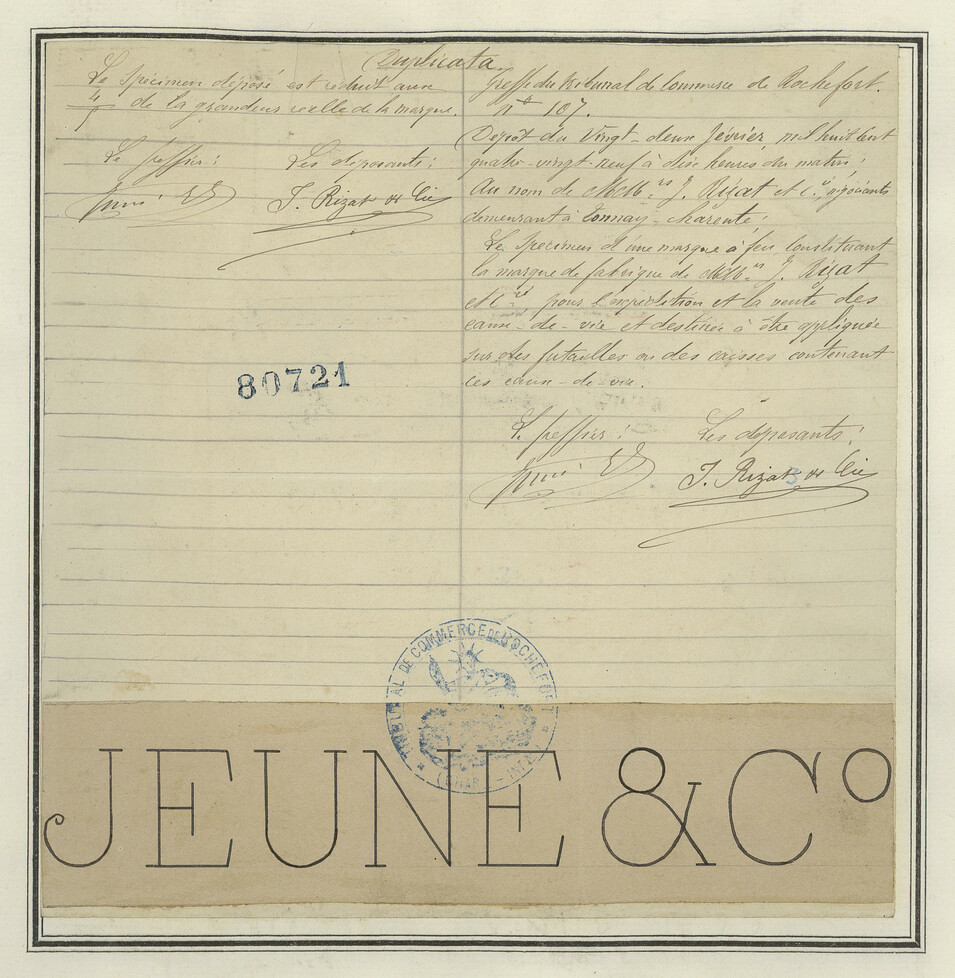 Duplicata
Le spécimen déposé est réduit aux
4/5 de la grandeur réelle de la marque.
Le greffier :
Les déposants :
J. Rizat & Cie
Greffe du tribunal de Commerce de Rochefort.
No 107.
Dépôt du vingt-deux février mil huit cent
quatre-vingt-neuf à dix heures du matin ;
Au nom de MM.rs J. Rizat et Cie, négociants
demeurant à Tonnay-Charente ;
Le spécimen d'une marque à feu constituant
la marque de fabrique de MM.rs J. Rizat
et Cie pour l'expédition et la vente des
eaux-de-vie et destinée à être appliquée
sur des futailles ou des caisses contenant
ces eaux-de-vie.
Le greffier :
Les déposants :
J. Rizat & Cie
80721
TRIBUNAL DE COMMERCE DE ROCHEFORT
(CHAR.-INF.)
JEUNE & Co